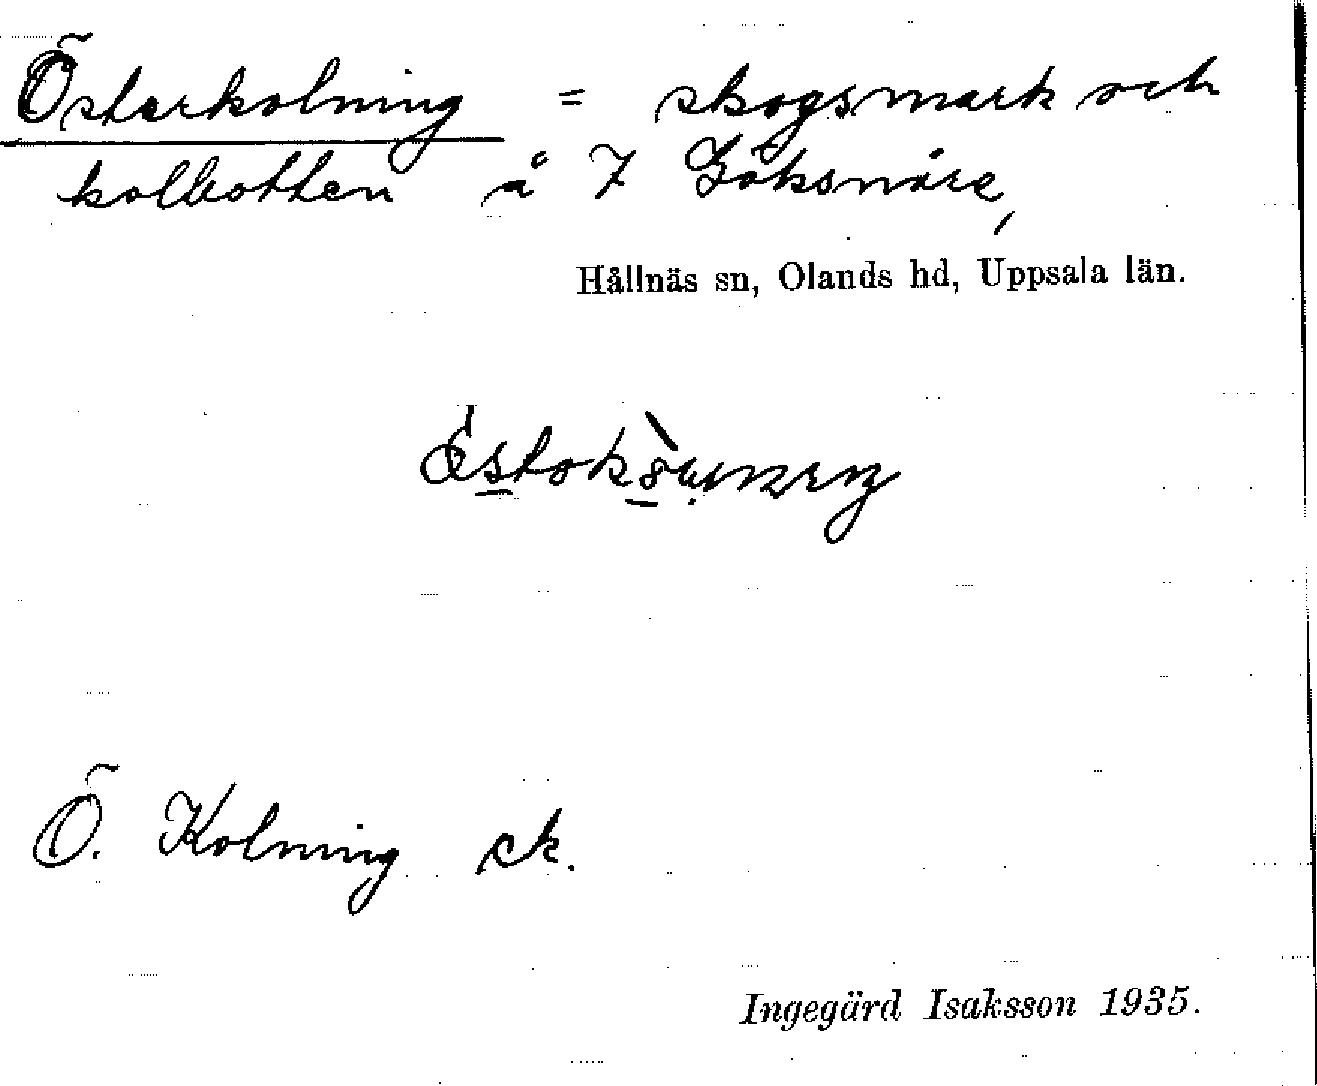 Österkolning = skogsmark och
kolbotten å 7 Göksnåre,
Hållnäs sn, Olands hd, Uppsala län.
Ö. Kolning ek.
Ingegärd Isaksson 1935.